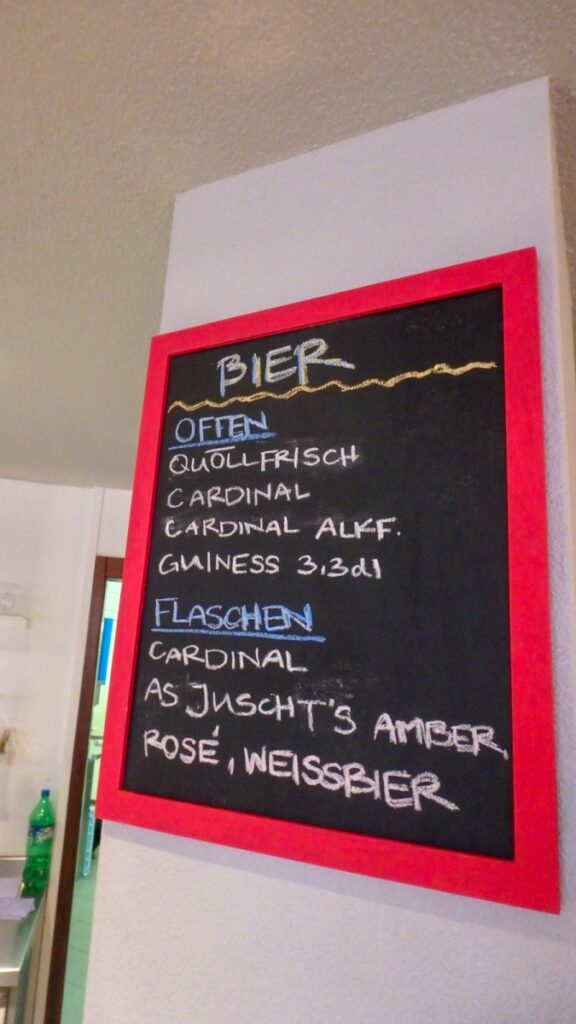 BIER
OFFEN
QUÖLLFRISCH
CARDINAL
CARDINAL ALKF.
GUINESS 3,3dl
FLASCHEN
CARDINAL
AS JUSCHT'S AMBER,
ROSÉ, WEISSBIER